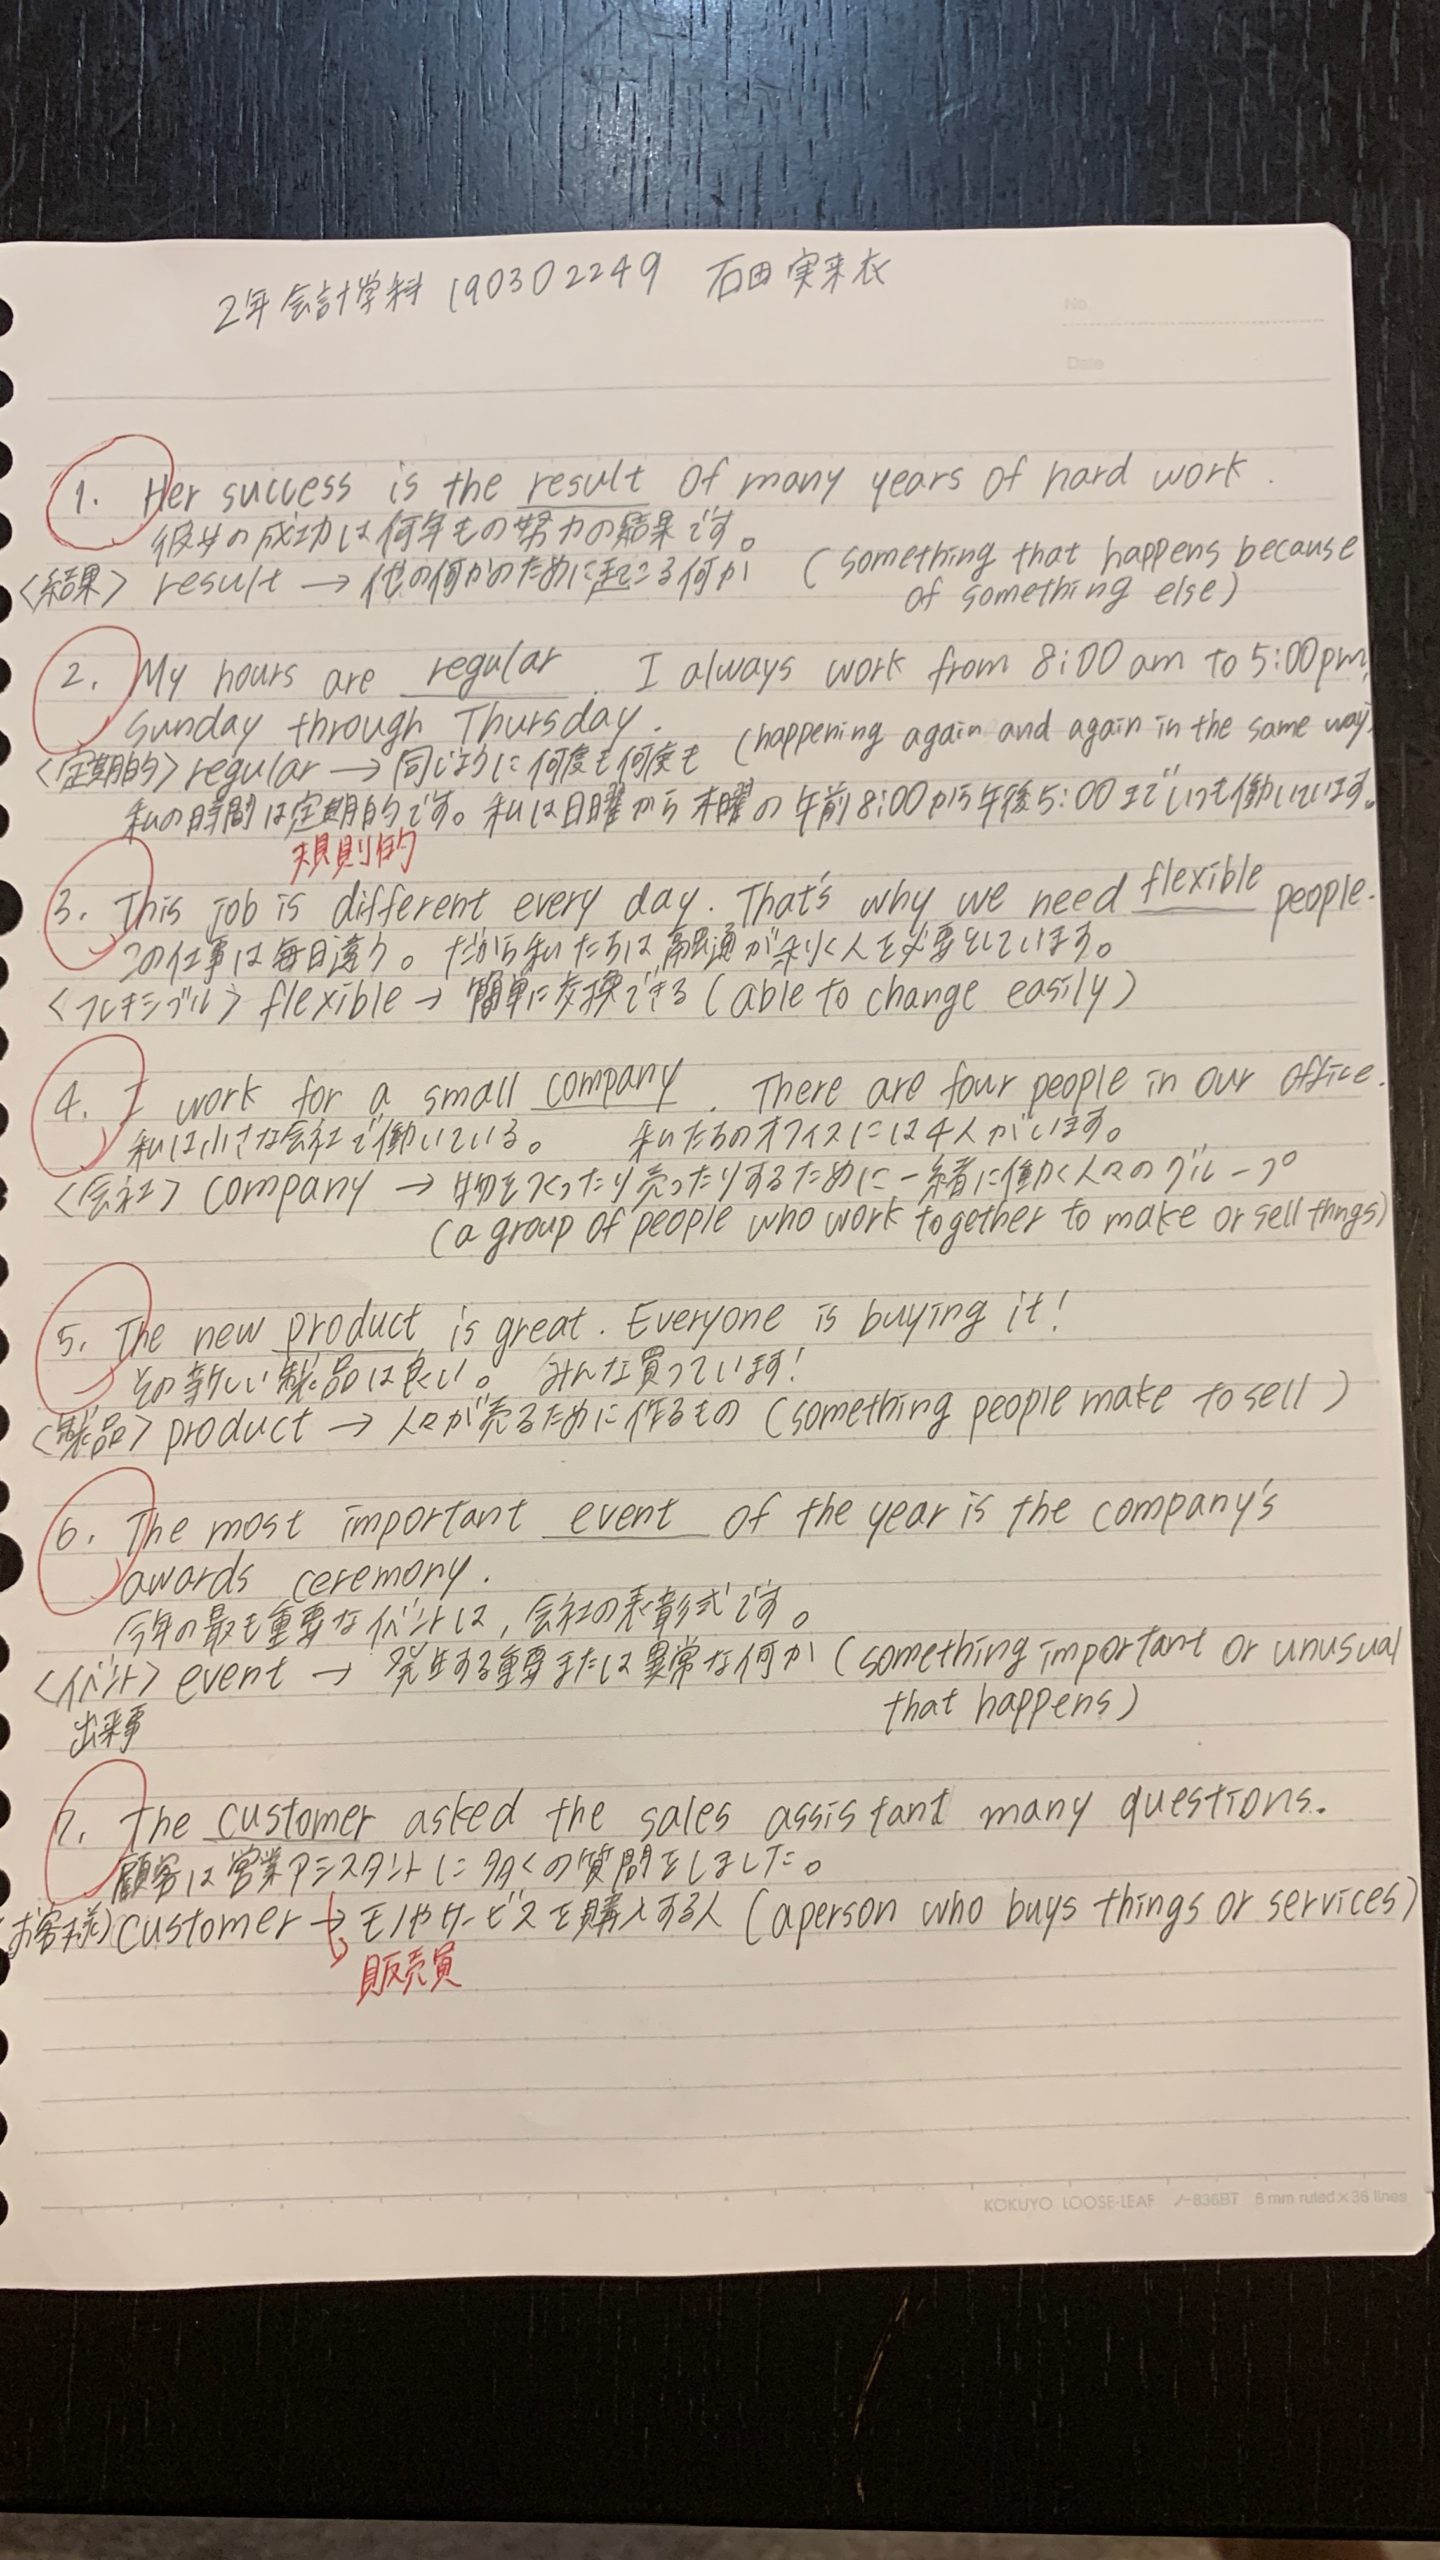 2年会計学科 190302249 石田実来衣
No
Date
1. Her success is the result of many years of hard work.
彼女の成功は何年もの努力の結果です。
<結果> result → 他の何かのために起こる何か (something that happens because
of something else)
2. My hours are regular. I always work from 8:00 am to 5:00pm,
Sunday through Thursday.
<定期的> regular → 同じように何度も何度も (happening again and again in the same way)
私の時間は定期的です。私は日曜から木曜の午前8:00から午後5:00までいつも働いています。
規則的
3. This job is different every day. That's why we need flexible people.
この仕事は毎日違う。だから私たちは融通が利く人を必要としています。
<フレキシブル> flexible → 簡単に交換できる (able to change easily)
4. I work for a small company. There are four people in our office.
私は小さな会社で働いている。 私たちのオフィスには4人がいます。
<会社> company → 物をつくったり売ったりするために一緒に働く人々のグループ
(a group of people who work together to make or sell thngs)
5. The new product is great. Everyone is buying it!
その新しい製品は良い。 みんな買っています!
<製品> product → 人々が売るために作るもの (something people make to sell)
6. The most important event of the year is the company's
awards ceremony.
今年の最も重要なイベントは,会社の表彰式です。
<イベント> event → 発生する重要または異常な何か (something important or unusual
出来事 that happens)
7. The customer asked the sales assistant many questions.
顧客は営業アシスタントに多くの質問をしました。
(お客様) customer → モノやサービスを購入する人 (a person who buys things or services)
販売員
KOKUYO LOOSE-LEAF ノ-836BT 6 mm ruled×36 lines